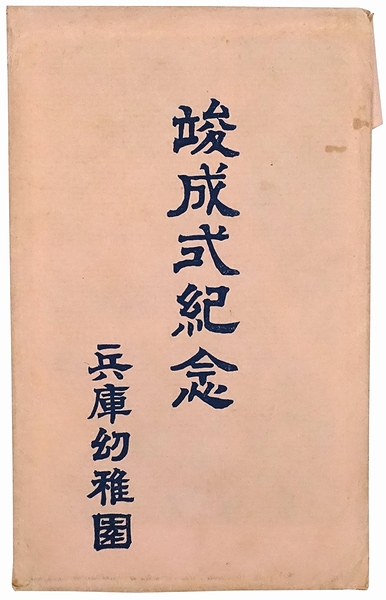 竣成式紀念
兵庫幼稚園